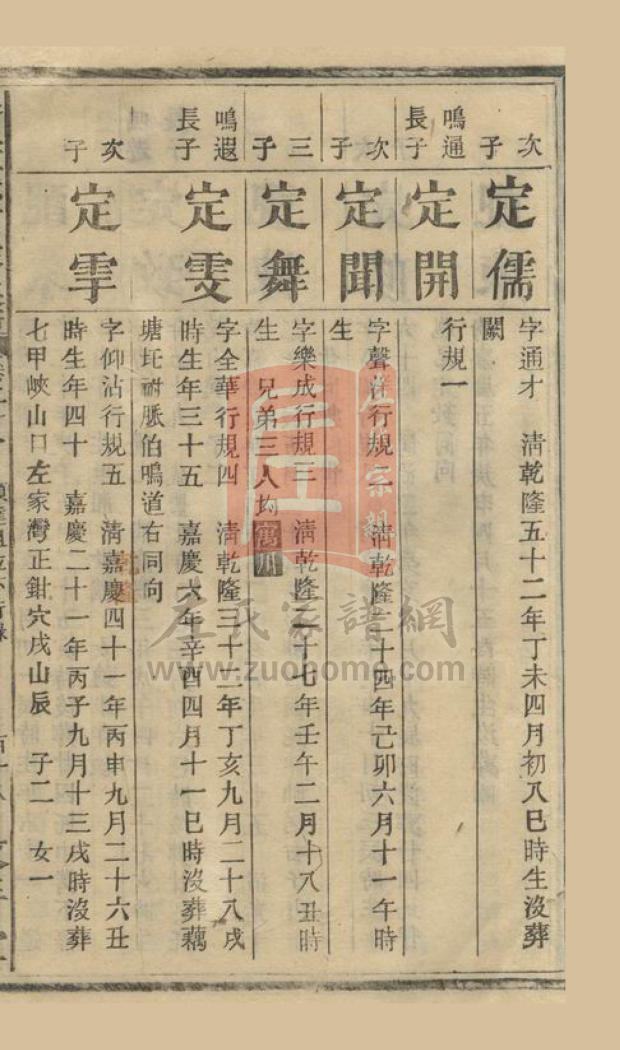 次子
定儒
字通才　清乾隆五十二年丁未四月初八巳時生沒葬
闕
鳴通長子
定開
行規一
次子
定聞
字聲 行規二　清乾隆二十四年己卯六月十一午時
生
三子
定舞
字樂成行規三　清乾隆二十七年壬午二月十八丑時
生　兄弟三人均寓川
鳴遐長子
定雯
字全華行規四　清乾隆三十二年丁亥九月二十八戌
時生年三十五　嘉慶六年辛酉四月十一巳時沒葬藕
塘圫祔脈伯鳴道右同向
次子
定雽
字仰沾行規五　清嘉慶四十一年丙申九月二十六丑
時生年四十　嘉慶二十一年丙子九月十三戌時沒葬
七甲峽山口左家灣正鉗穴戌山辰　子二　女一
左氏家譜網
www.zuohome.com